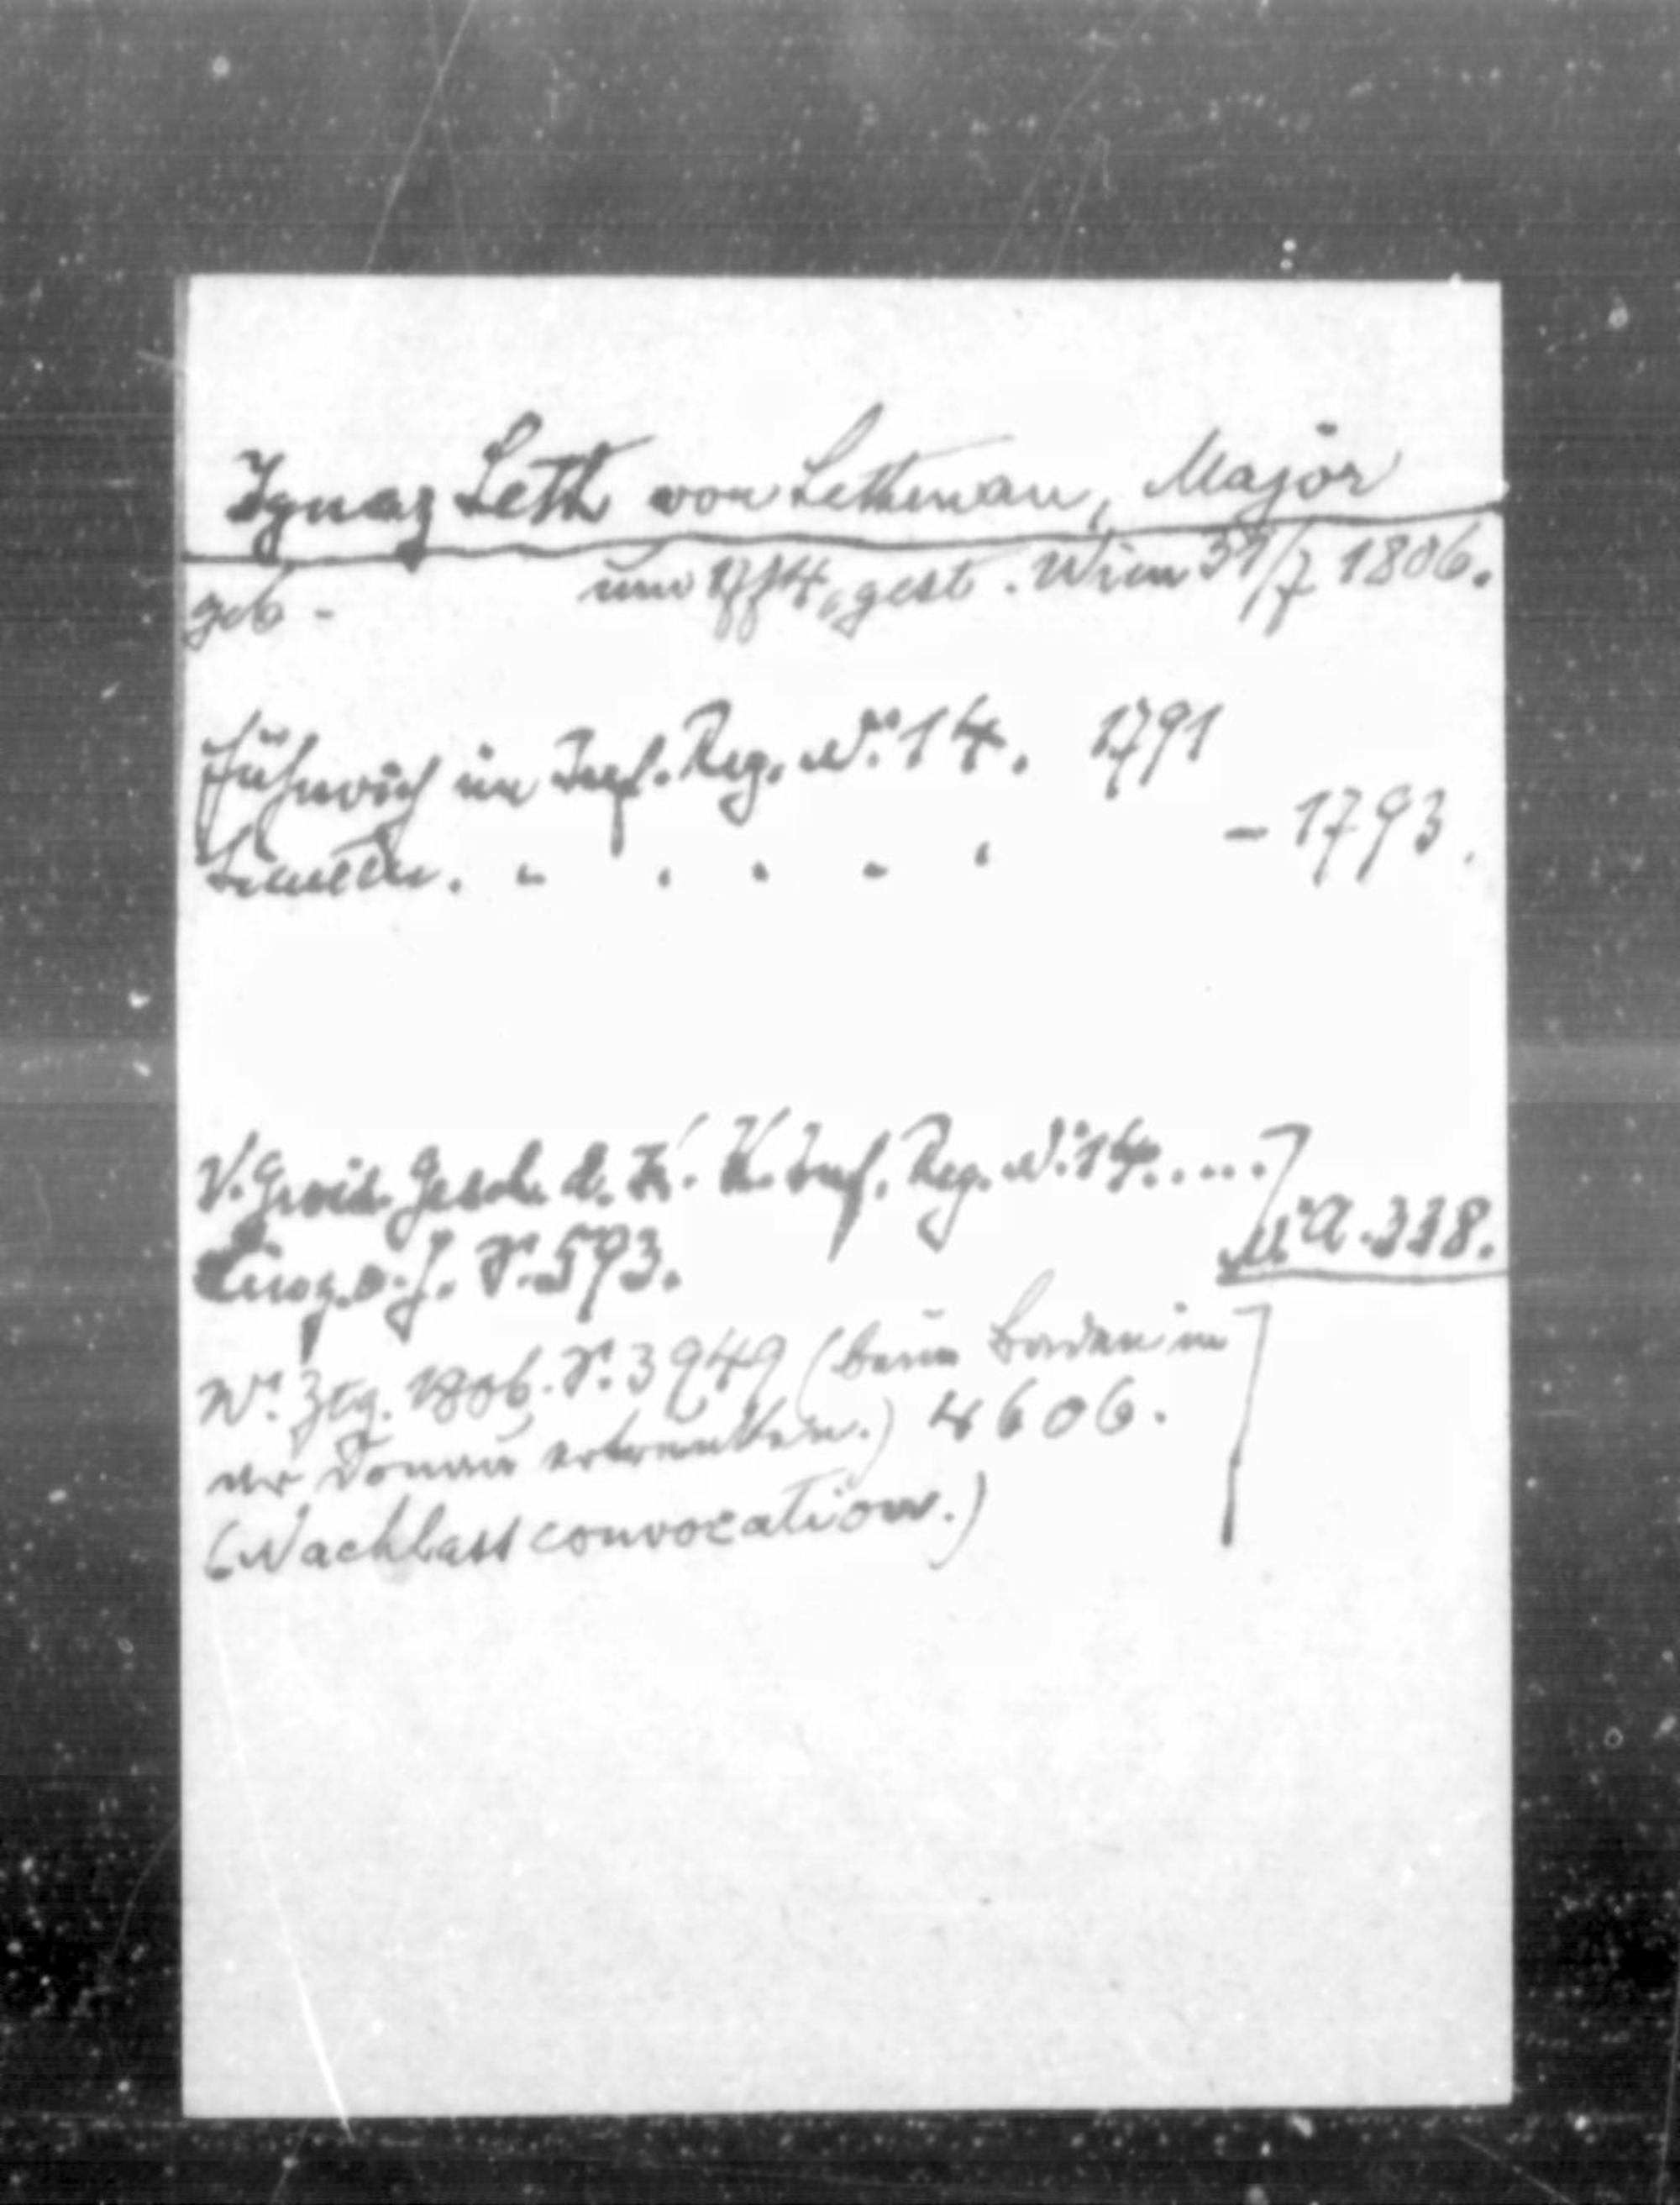 Ignaz Leth von Lethenau, Major
geb - um 1774, gest. Wien 31/7 1806.
Fähnrich im Inf. Reg. No. 14. 1791
Lieutn. " " " " " - 1793.
V. Grois. Gesch. d. K. K. Inf. Reg. No. 14.....
Linz o. J. S. 593.
M. A. 338.
Wr. Ztg. 1806. S. 3949 (beim Baden in
der Donau ertrunken.) 4606.
(Nachlass convocation.)